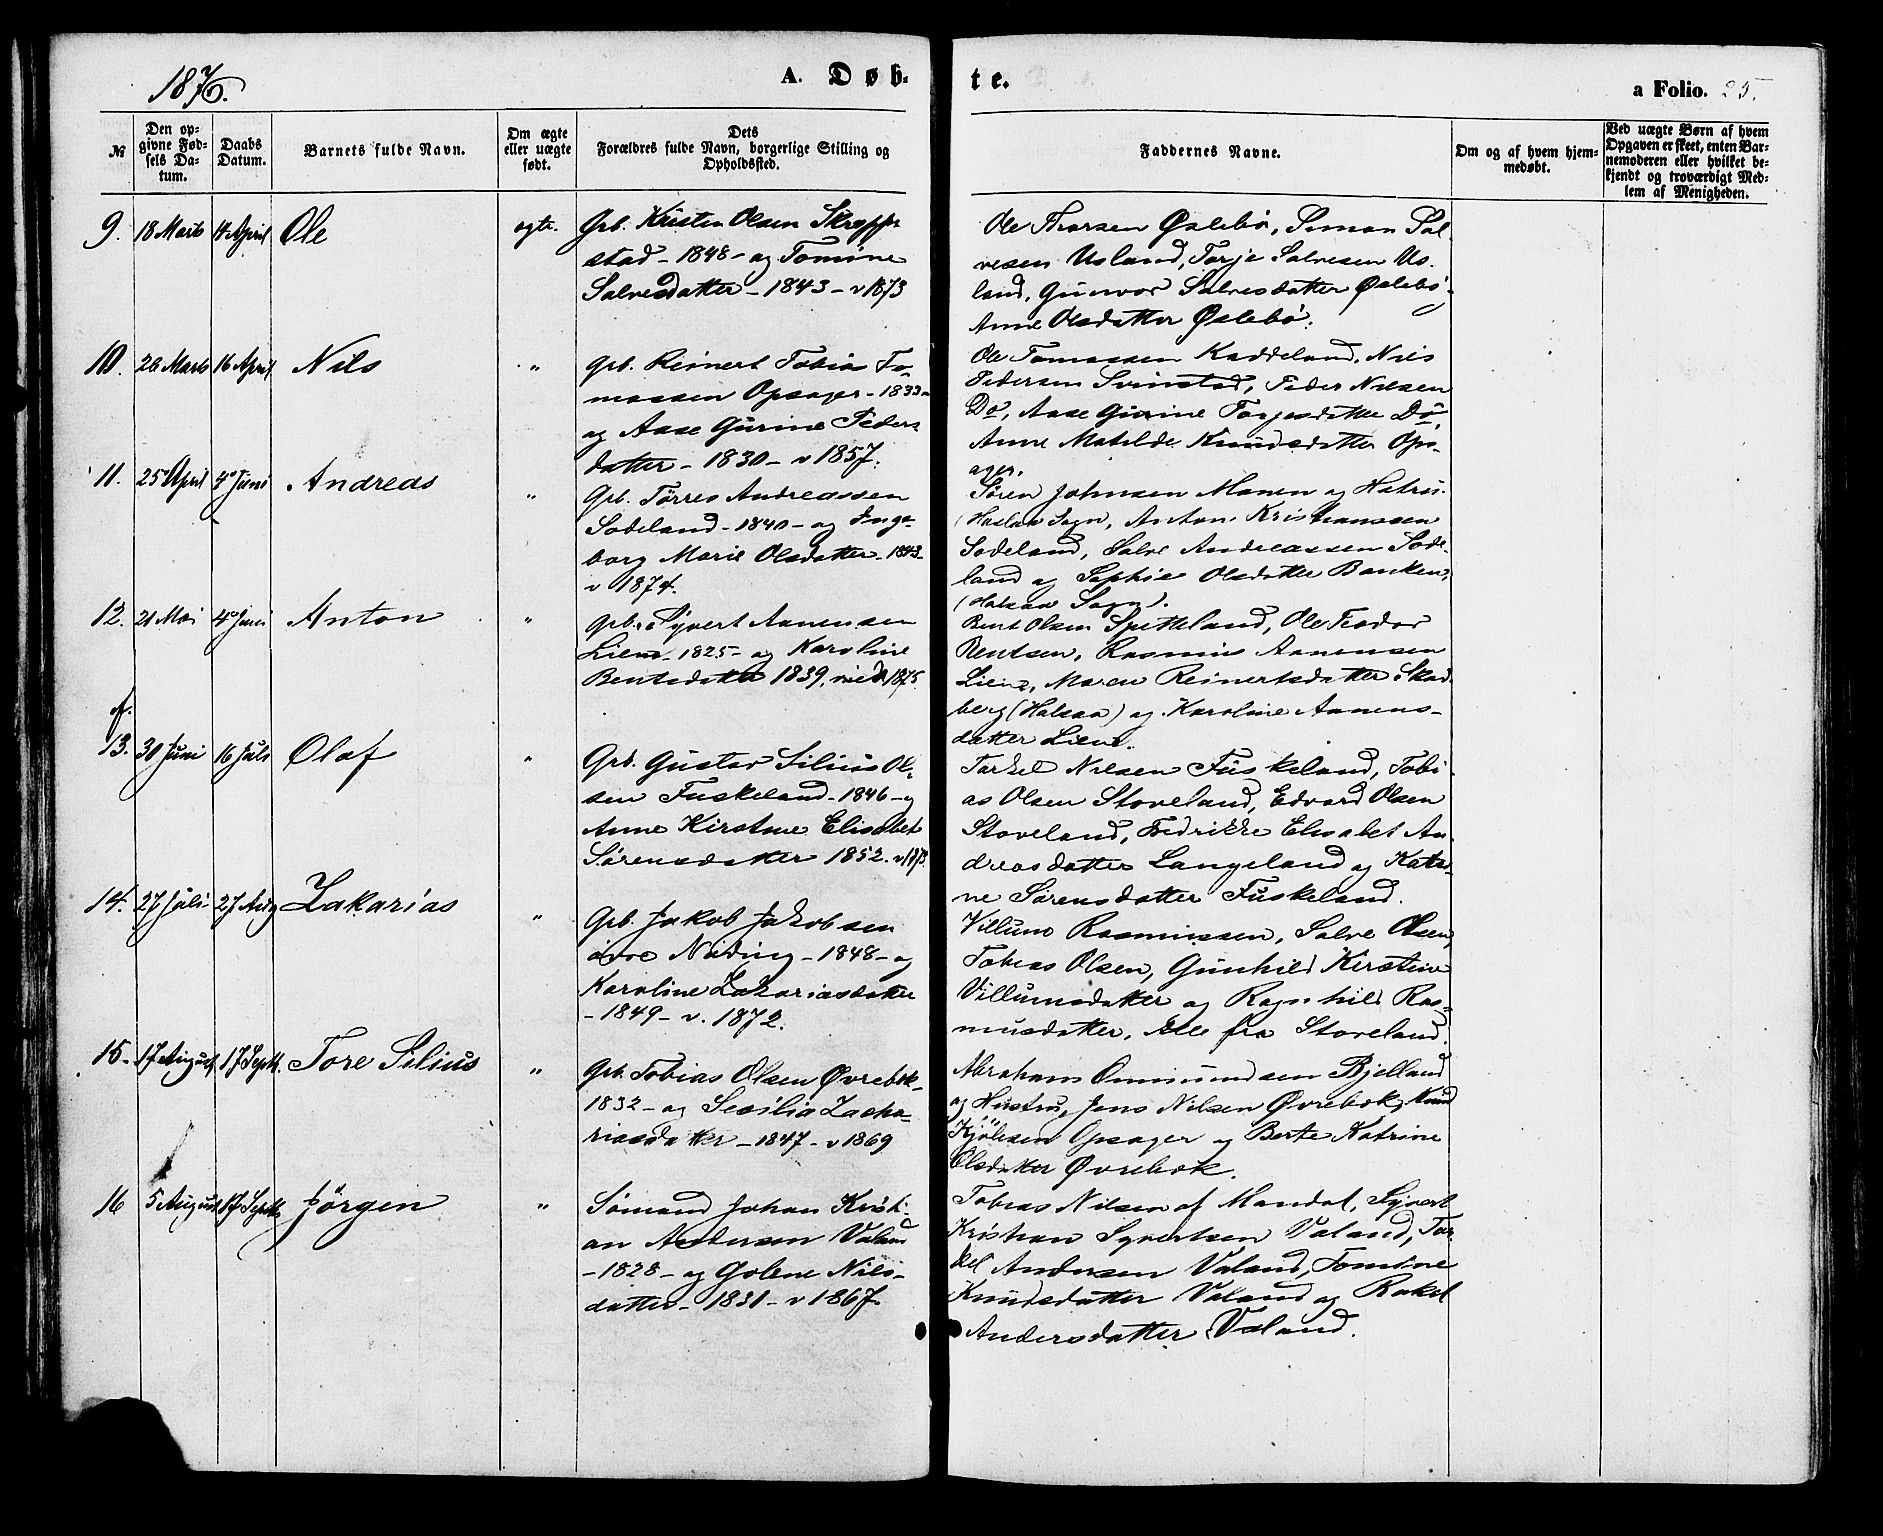 1876.
A. Døb-
te.
a Folio. 25.
№
Den op-
givne Fød-
sels Da-
tum.
Daabs
Datum.
Barnets fulde Navn.
Om ægte
eller uægte
født.
Dets
Forældres fulde Navn, borgerlige Stilling og
Opholdssted.
Faddernes Navne.
Om og af hvem hjem-
medøbt.
Ved uægte Børn af hvem
Opgaven er skeet, enten Bar-
nemoderen eller hvilket be-
kjendt og troværdigt Med-
lem af Menigheden.
9. 18 Marts 17 April Ole ægte.
Grb. Kristen Olsen Skreppe-
stad - 1848 - og Tomine
Salvesdatter - 1843 - v 1873
Ole Thorsen Øslebø, Simon Sal-
vesen Usland, Torje Salvesen Us-
land, Gunvor Salvesdatter Øslebø,
Anne Olsdatter Øslebø.
10. 26 Marts 16 April Nils "
Grb. Reinert Tobias To-
massen Opsager - 1833 -
og Aase Gurine Peders-
datter - 1830 - v 1857.
Ole Tomassen Kaddeland, Nils
Pedersen Svinstad, Peder Nilsen
Do, Aase Gurine Torjesdatter Do,
Anne Matilde Knudsdatter Ops-
ager.
11. 25 April 4 Juni Andreas "
Grb. Tørres Andreassen
Sodeland - 1840 - og Inge-
borg Marie Olsdatter - 1843 -
v 1874.
Søren Johnsen Monen og Hustru
(Halsaa Sogn, Anton Kristianssen
Sodeland, Salve Andreassen Sode-
land og Sophie Olsdatter Banken,
(Halsaa Sogn).
12. 21 Mai 4 Juni Anton "
Grb. Syvert Aanensen
Liene - 1825 - og Karoline
Bentsdatter 1839, vied 1875.
Bent Olsen Spitteland, Ole Teodor
Bentsen, Rasmus Aanensen
Liene, Maren Reinertsdatter Skad-
berg (Halsaa) og Karoline Aanens-
datter Liene.
13. 30 Juni 16 Juli Olaf "
Grb. Gustav Silius Ol-
sen Fuskeland - 1846 - og
Anne Kirstine Elisabet
Sørensdatter 1852. v 1873
Torkel Nilsen Fuskeland, Tobi-
as Olsen Stoveland, Edvard Olsen
Stoveland, Fredrikke Elisabet An-
dreasdatter Langeland og Katri-
ne Sørensdatter Fuskeland.
14. 27 Juli 27 Aug Zakarias "
Grb. Jakob Jakobsen
øvre Nøding - 1848 - og
Karoline Zakariasdatter
- 1849 - v. 1872.
Villum Rasmussen, Salve Olsen,
Tobias Olsen, Gunhild Kirstine
Villumsdatter og Ragnhild Ras-
musdatter, Alle fra Stoveland.
15. 17 August 17 Septb. Tore Silius "
Grb. Tobias Olsen Øvrebøk -
1832 - og Sesilia Zacha-
riasdatter - 1847 - v 1869
Abraham Ommundsen Bjelland
og Hustru, Jens Nilsen Øvrebøk, Knud
Kjølesen Opsager og Berte Katrine
Olsdatter Øvrebøk.
16 5 August 17 Septb. Jørgen "
Sømand Johan Kristi-
an Andersen Valand
- 1828 - og Golene Nils-
datter - 1831 - v 1867.
Tobias Nilsen af Mandal, Syvert
Kristian Syvertsen Valand, Tor-
kel Andersen Valand, Tomine
Knudsdatter Valand og Rakel
Andersdatter Valand.